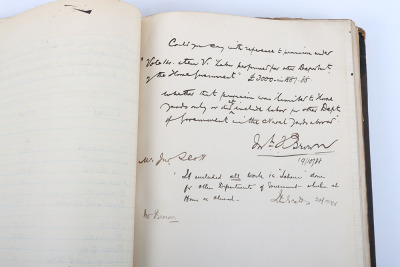 Could you say with reference to provision under
"Vote 10. item V. Labor performed for other Departmts
of the Home Government" £3000 in 1887-88
whether that provision was limited to Home
Yards only or did it include labor for other Depts
of Government in the Naval Yards abroad
Brown
19/10/88
Mr Jno. Scott
It included all work in "Labour" done
for other Departments of Government whether at
Home or abroad. Scott
Mr Brown